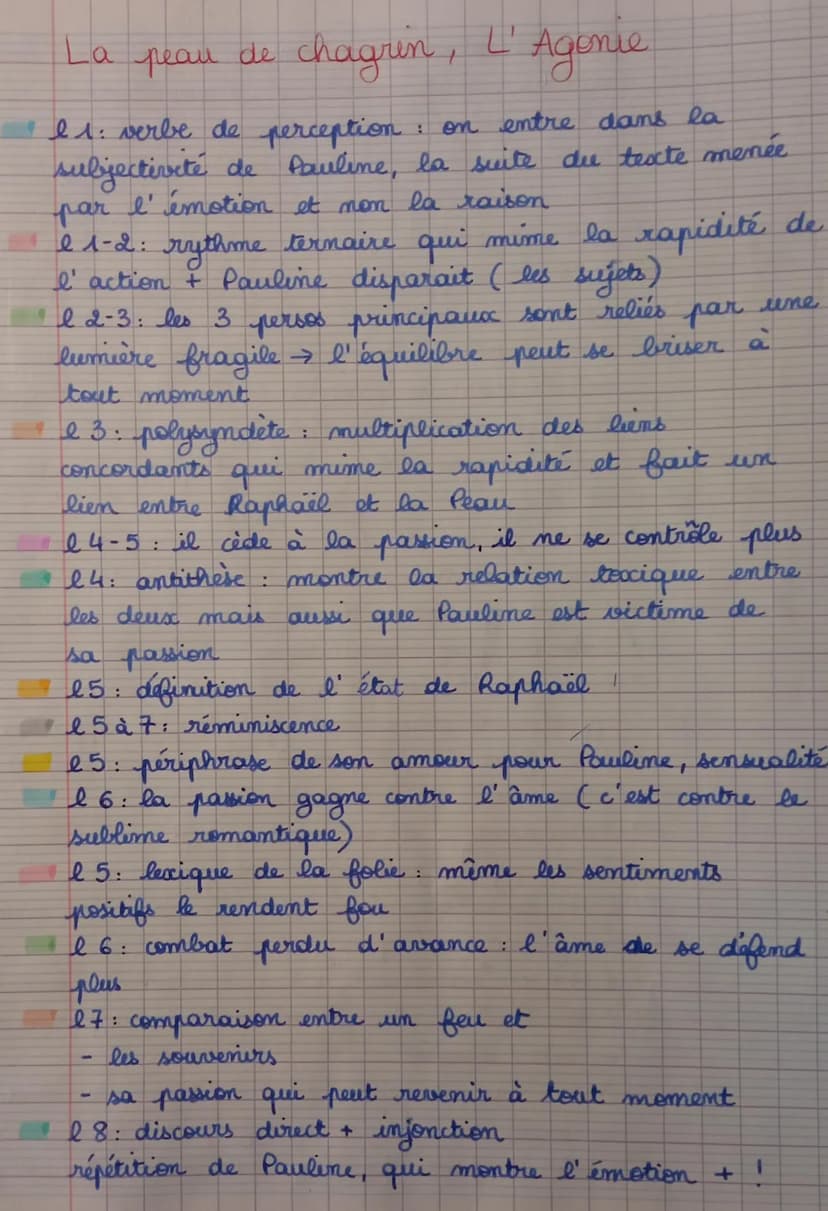 La peau de chagrin, L'Agonie
l 1 : verbe de perception : on entre dans la
subjectivité de Pauline, la suite du texte menée
par l'émotion et non la raison
l 1-2 : rythme ternaire qui mime la rapidité de
l'action + Pauline disparait (les sujets)
l 2-3 : les 3 persos principaux sont reliés par une
lumière fragile → l'équilibre peut se briser à
tout moment
l 3 : polysyndète : multiplication des liens
concordants qui mime la rapidité et fait un
lien entre Raphaël et la Peau
l 4-5 : il cède à la passion, il ne se contrôle plus
l 4 : antithèse : montre la relation toxique entre
les deux mais aussi que Pauline est victime de
sa passion
l 5 : définition de l'état de Raphaël
l 5 à 7 : réminiscence
l 5 : périphrase de son amour pour Pauline, sensualité
l 6 : la passion gagne contre l'âme (c'est contre le
sublime romantique)
l 5 : lexique de la folie : même les sentiments
positifs le rendent fou
l 6 : combat perdu d'avance : l'âme de se défend
plus
l 7 : comparaison entre un feu et
- les souvenirs
- sa passion qui peut revenir à tout moment
l 8 : discours direct + injonction
répétition de Pauline, qui montre l'émotion + !